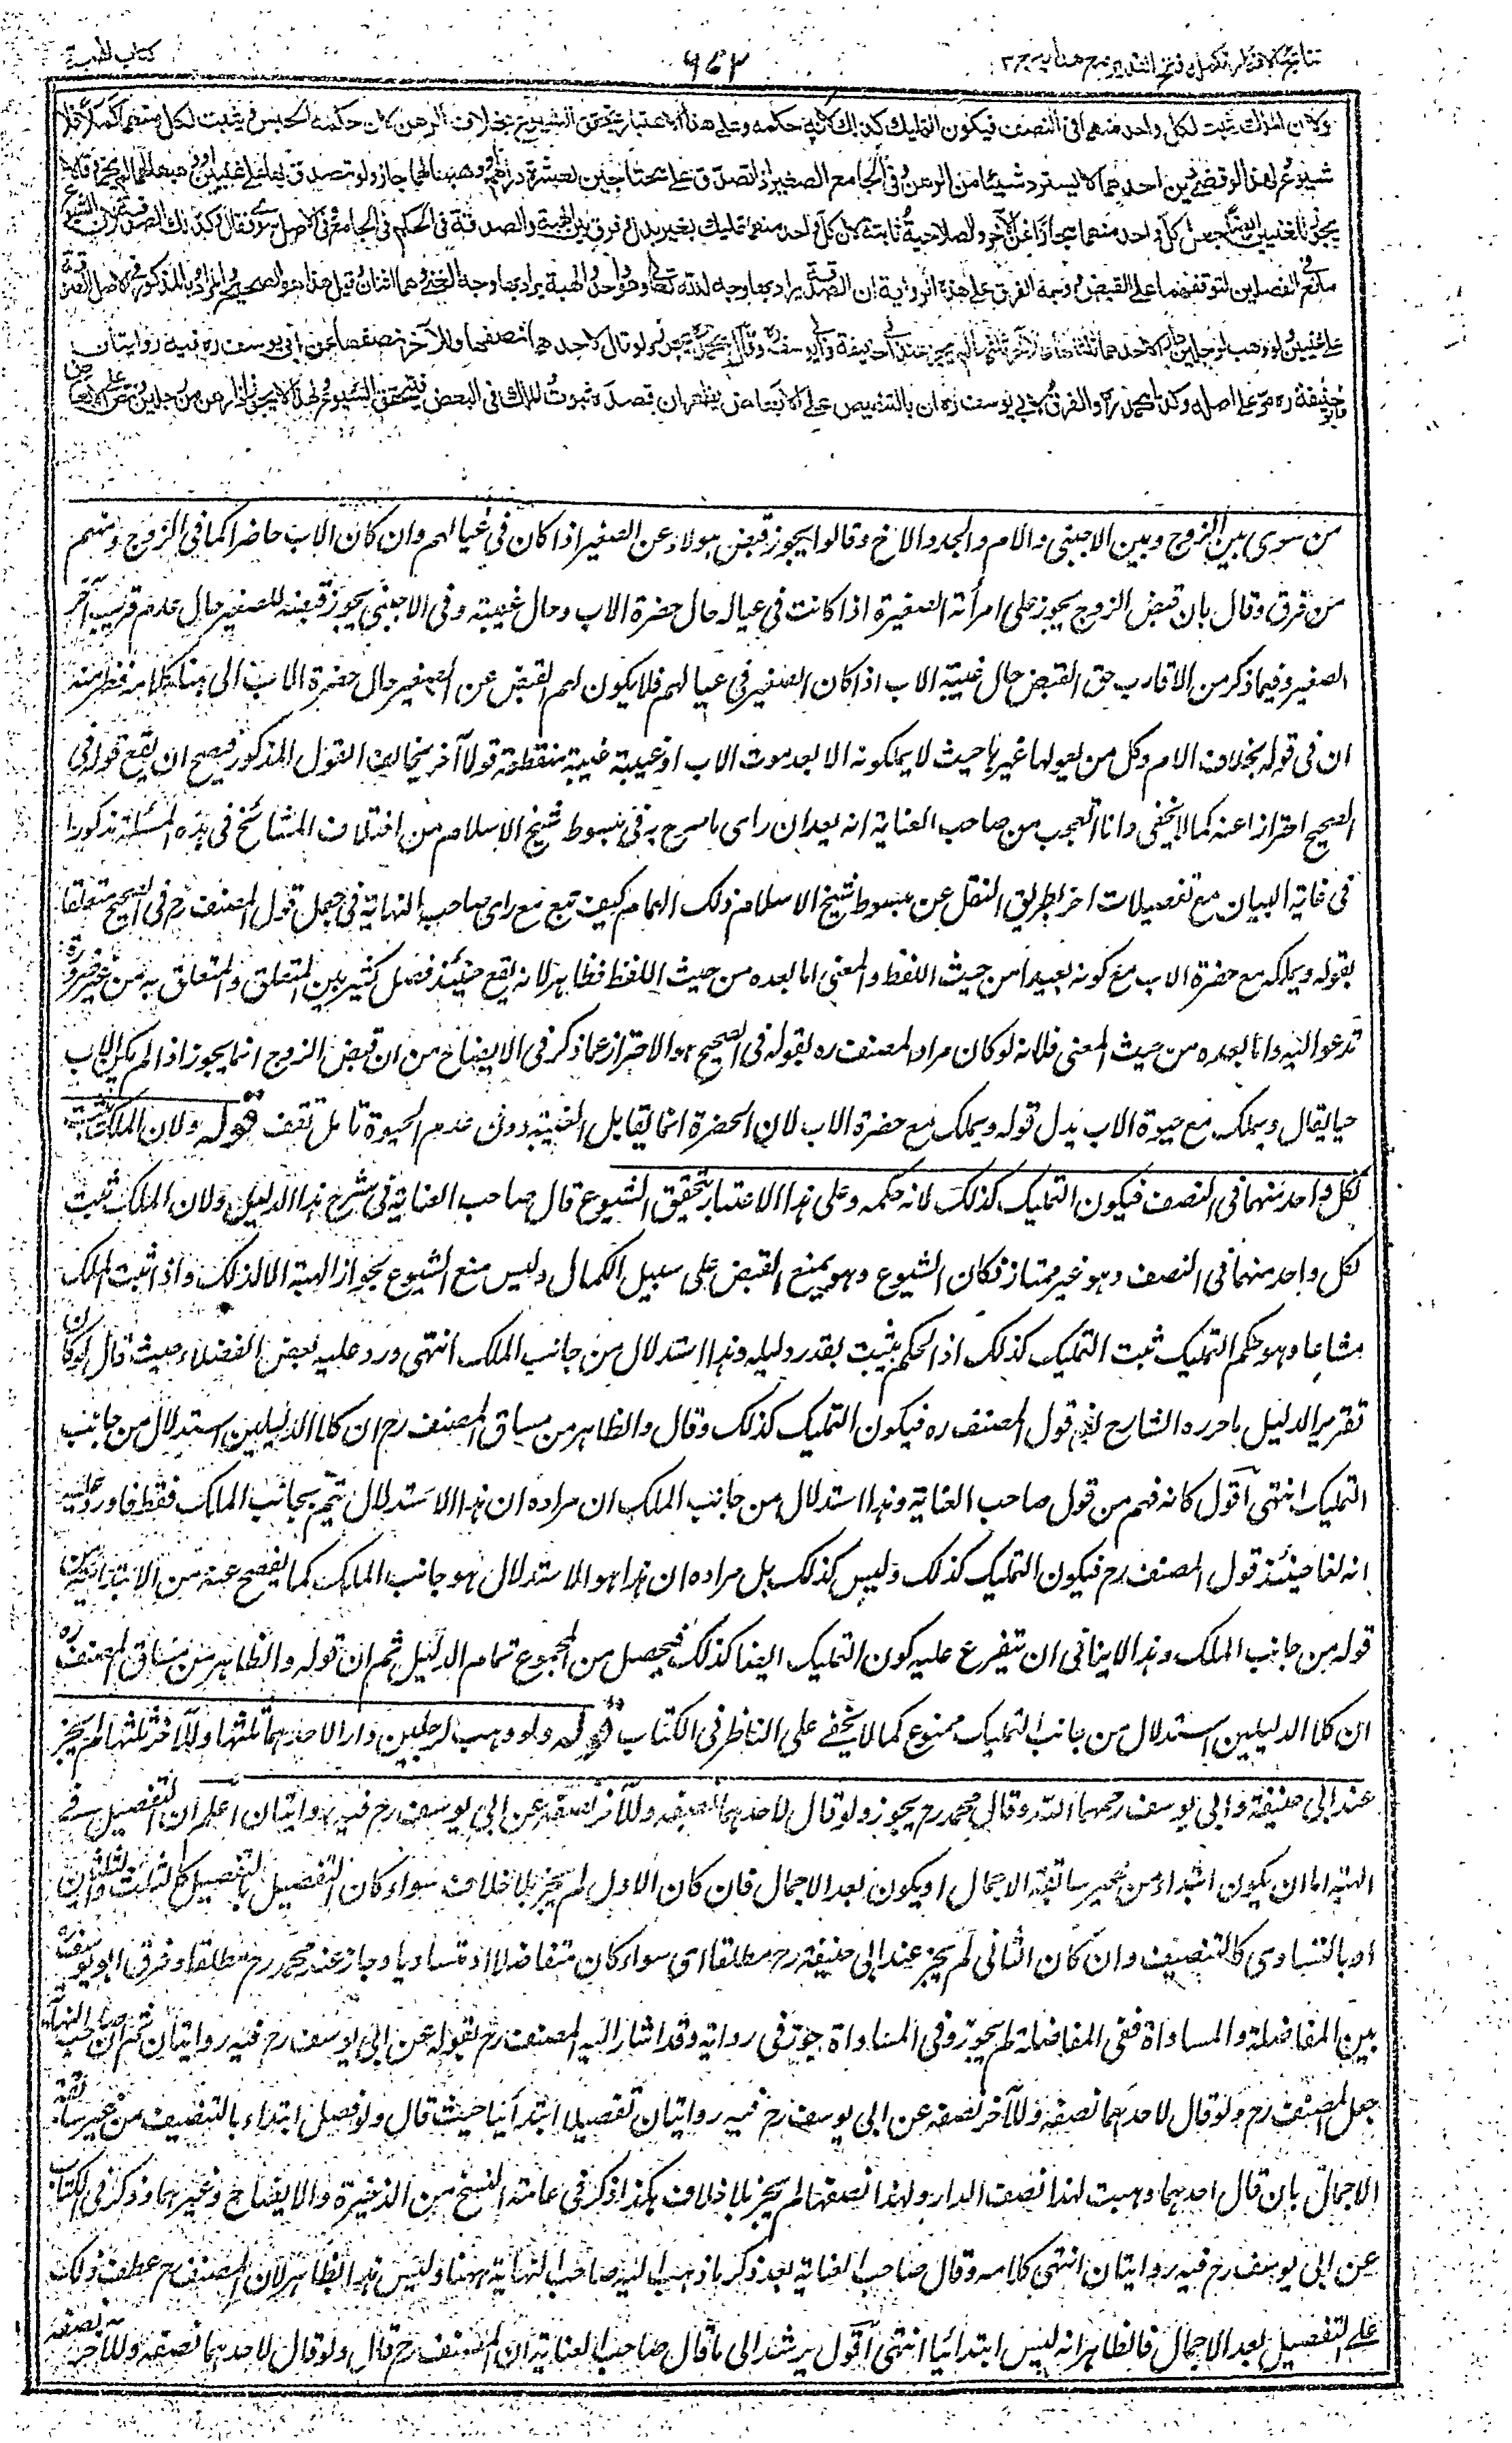 نتائج الافكار تكمله فتح القدير مع هدايه ج ٣
٩٤٣
كتاب الهبة
ولان الملك يثبت لكل واحد منهما فى النصف فيكون التمليك كذلك لانه حكمه وعلى هذا الاعتبار يتحقق الشيوع بخلاف الرهن لان حكمه الحبس ويثبت لكل منهما كملا فلا
شيوع ولهذا لو قضى دين احدهما لا يسترد شيئا من الرهن وفى الجامع الصغير اذا تصدق على محتاجين بعشرة دراهم او وهبها لهما جاز ولو تصدق بها على غنيين او وهبها لهما لم يجز وقالا
يجوز للغنيين ايضا جعل كل واحد منهما مجازا عن الآخر والصلاحية ثابتة لان كل واحد منهما تمليك بغير بدل وفرق بين الهبة والصدقة فى الحكم فى الجامع وفى الاصل سوى فقال وكذلك الصدقة لان الشيوع
مانع فى الفصلين لتوقفهما على القبض ووجه الفرق على هذه الرواية ان الصدقة يراد بها وجه الله تعالى وهو واحد والهبة يراد بها وجه الغنى وهما اثنان وقيل هذا هو الصحيح والمراد بالمذكور فى الاصل الصدقة
على غنيين ولو وهب لرجلين دارا لاحدهما ثلثاها وللآخر ثلثها لم يجز عند ابى حنيفة وابى يوسف ره وقال محمد ره يجوز ولو قال لاحدهما نصفها وللآخر نصفها عن ابى يوسف ره فيه روايتان
فابو حنيفة ره مر على اصله وكذا محمد ره والفرق لابى يوسف ره ان بالتنصيص على الابعاض يظهر ان قصده ثبوت الملك فى البعض فيتحقق الشيوع ولهذا لا يجوز اذا رهن من رجلين ونص على الابعاض
من سوى بين الزوج وبين الاجنبى والام والجد والاخ وقالوا يجوز قبض هولاء عن الصغير اذا كان فى عيالهم وان كان الاب حاضرا كما فى الزوج ومنهم
من فرق وقال بان قبض الزوج يجوز على امرأته الصغيرة اذا كانت فى عياله حال حضرة الاب وحال غيبته وفى الاجنبى يجوز قبضه للصغير حال عدم قريب آخر
الصغير وفيما ذكر من الاقارب حق القبض حال غيبة الاب اذا كان الصغير فى عيالهم فلا يكون لهم القبض عن الصغير حال حضرة الاب الى هنا كلامه فظهر منه
ان فى قوله بخلاف الام وكل من يعولها غيرها حيث لا يملكونه الا بعد موت الاب او غيبته غيبة منقطعة قولا آخر يخالف القول المذكور فيصح ان يقع قوله فى
الصحيح احترازا عنه كما لا يخفى وانا اتعجب من صاحب العناية انه بعد ان راى ما صرح به فى مبسوط شيخ الاسلام من اختلاف المشائخ فى هذه المسئلة مذكورا
فى غاية البيان مع تفصيلات اخر بطريق النقل عن مبسوط شيخ الاسلام ذلك الهمام كيف تبع مع راى صاحب النهاية فى جعل قول المصنف رح فى الصحيح متعلقا
بقوله ويملكه مع حضرة الاب مع كونه بعيدا من حيث اللفظ والمعنى اما بعده من حيث اللفظ فظاهر لانه يقع حينئذ فصل كثير بين المتعلق والمتعلق به من غير ضرورة
تدعو اليه واما بعده من حيث المعنى فلانه لو كان مراد المصنف ره بقوله فى الصحيح هو الاحتراز عما ذكر فى الايضاح من ان قبض الزوج انما يجوز اذا لم يكن الاب
حيا لقال ويملك مع حيوة الاب بدل قوله ويملك مع حضرة الاب لان الحضرة انما يقابل الغيبة دون عدم الحيوة تأمل تقف قوله ولان الملك يثبت
لكل واحد منهما فى النصف فيكون التمليك كذلك لانه حكمه وعلى هذا الاعتبار يتحقق الشيوع قال صاحب العناية فى شرح هذا الدليل ولان الملك يثبت
لكل واحد منهما فى النصف وهو غير ممتاز فكان الشيوع وهو يمنع القبض على سبيل الكمال وليس منع الشيوع لجواز الهبة الا لذلك واذا ثبت الملك
مشاعا وهو حكم التمليك ثبت التمليك كذلك اذ الحكم يثبت بقدر دليله وهذا استدلال من جانب الملك انتهى ورد عليه بعض الفضلاء حيث قال لو كان
تقرير الدليل ما حرره الشارح لغى قول المصنف ره فيكون التمليك كذلك وقال والظاهر من مساق المصنف رح ان كلا الدليلين استدلال من جانب
التمليك انتهى اقول كانه فهم من قول صاحب العناية وهذا استدلال من جانب الملك ان مراده ان هذا الاستدلال يتم بجانب الملك فقط فاورد عليه
انه لغا حينئذ قول المصنف رح فيكون التمليك كذلك وليس كذلك بل مراده ان هذا هو الاستدلال هو جانب الملك كما يفصح عنه من الابتدائية من
قوله من جانب الملك وهذا لا ينافى ان يتفرع عليه كون التمليك ايضا كذلك فيحصل من المجموع تمام الدليل ثم ان قوله والظاهر من مساق المصنف ره
ان كلا الدليلين استدلال من جانب التمليك ممنوع كما لا يخفى على الناظر فى الكتاب قوله ولو وهب لرجلين دارا لاحدهما ثلثها وللآخر ثلثها لم يجز
عند ابى حنيفة وابى يوسف رحمهما الله وقال محمد رح يجوز ولو قال لاحدهما نصفه وللآخر نصفه عن ابى يوسف رح فيه روايتان اعلم ان التفصيل فى
الهبة اما ان يكون ابتداء من غير سابقة الاجمال او يكون بعد الاجمال فان كان الاول لم يجز بلا خلاف سواء كان التفصيل بالتفضيل كالثلث والثلثين
او بالتساوى كالتنصيف وان كان الثانى لم يجز عند ابى حنيفة رح مطلقا اى سواء كان متفاضلا او متساويا وجاز عند محمد رح مطلقا وفرق ابو يوسف ره
بين المفاضلة والمساواة ففى المفاضلة لم يجوز وفى المساواة جوز فى رواية وقد اشار اليه المصنف رح بقوله عن ابى يوسف رح فيه روايتان ثم ان صاحب النهاية
جعل المصنف رح ولو قال لاحدهما نصفه وللآخر نصفه عن ابى يوسف رح فيه روايتان تفصيلا ابتدائيا حيث قال ولو فصل ابتداء بالتنصيف من غير سابقة
الاجمال بان قال احدهما وهبت لهذا نصف الدار ولهذا نصفها لم يجز بلا خلاف هكذا ذكر فى عامة النسخ من الذخيرة والايضاح وغيرهما وذكر فى الكتاب
عن ابى يوسف رح فيه روايتان انتهى كلامه وقال صاحب العناية بعد ذكر ما ذهب اليه صاحب النهاية ههنا وليس هذا بظاهر لان المصنف رح عطف ذلك
على التفصيل بعد الاجمال فالظاهر انه ليس ابتدائيا انتهى اقول يرشد الى ما قال صاحب العناية ان المصنف رح قال ولو قال لاحدهما نصفه وللآخر نصفه